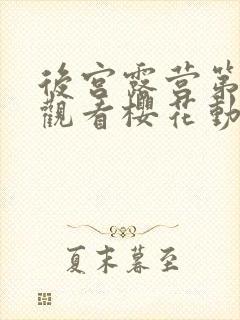 後宮露營第
觀看櫻花動
夏末暮至